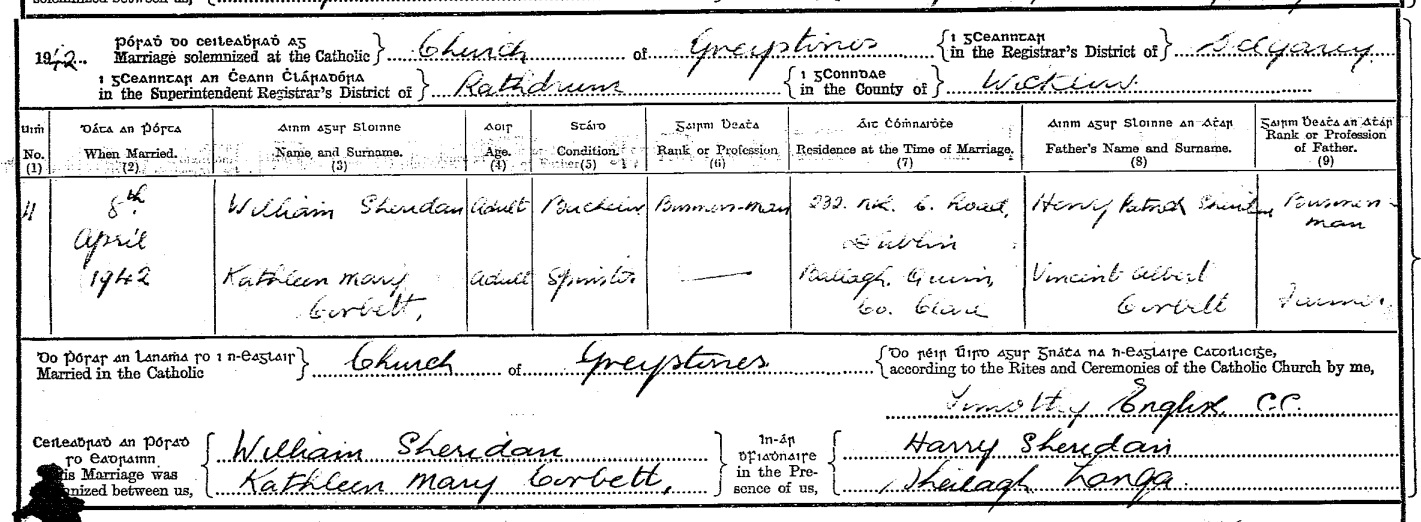 1942. Pórad do ceileabrad ag
Marriage solemnized at the Catholic } Church of Greystones { i gCeanntar
in the Registrar's District of } Delgany
i gCeanntar an Ceann Cláradóra
in the Superintendent Registrar's District of } Rathdrum { i gConndae
in the County of } Wicklow.
Uimh Dáta an Pórta Ainm agur Sloinne Aoir Stáid Gairm Beata Áit Cómnaidte Ainm agur Sloinne an Atar Gairm Beata an Atar
No. When Married. Name and Surname. Age. Condition. Rank or Profession Residence at the Time of Marriage. Father's Name and Surname. Rank or Profession
of Father.
(1) (2) (3) (4) (5) (6) (7) (8) (9)
11 8th William Sheridan Adult Bachelor Business-man 232. N.C. Road, Henry Patrick Sheridan Business-
April Dublin man
1942 Kathleen Mary Adult Spinster — Ballagh, Quin, Vincent Albert
Corbett, Co. Clare Corbett Farmer
Do Pórad an Lánama ro i n-eaglair } { Do réir Úird agur Gnáta na h-eaglaire Catoilicige,
Married in the Catholic Church of Greystones according to the Rites and Ceremonies of the Catholic Church by me,
Timothy English, C.C.
Ceileabrad an Pórad { William Sheridan } In-ár { Harry Sheridan
ro eadrainn fiadnaire
is Marriage was in the Pre-
nized between us, Kathleen Mary Corbett, sence of us, Sheilagh